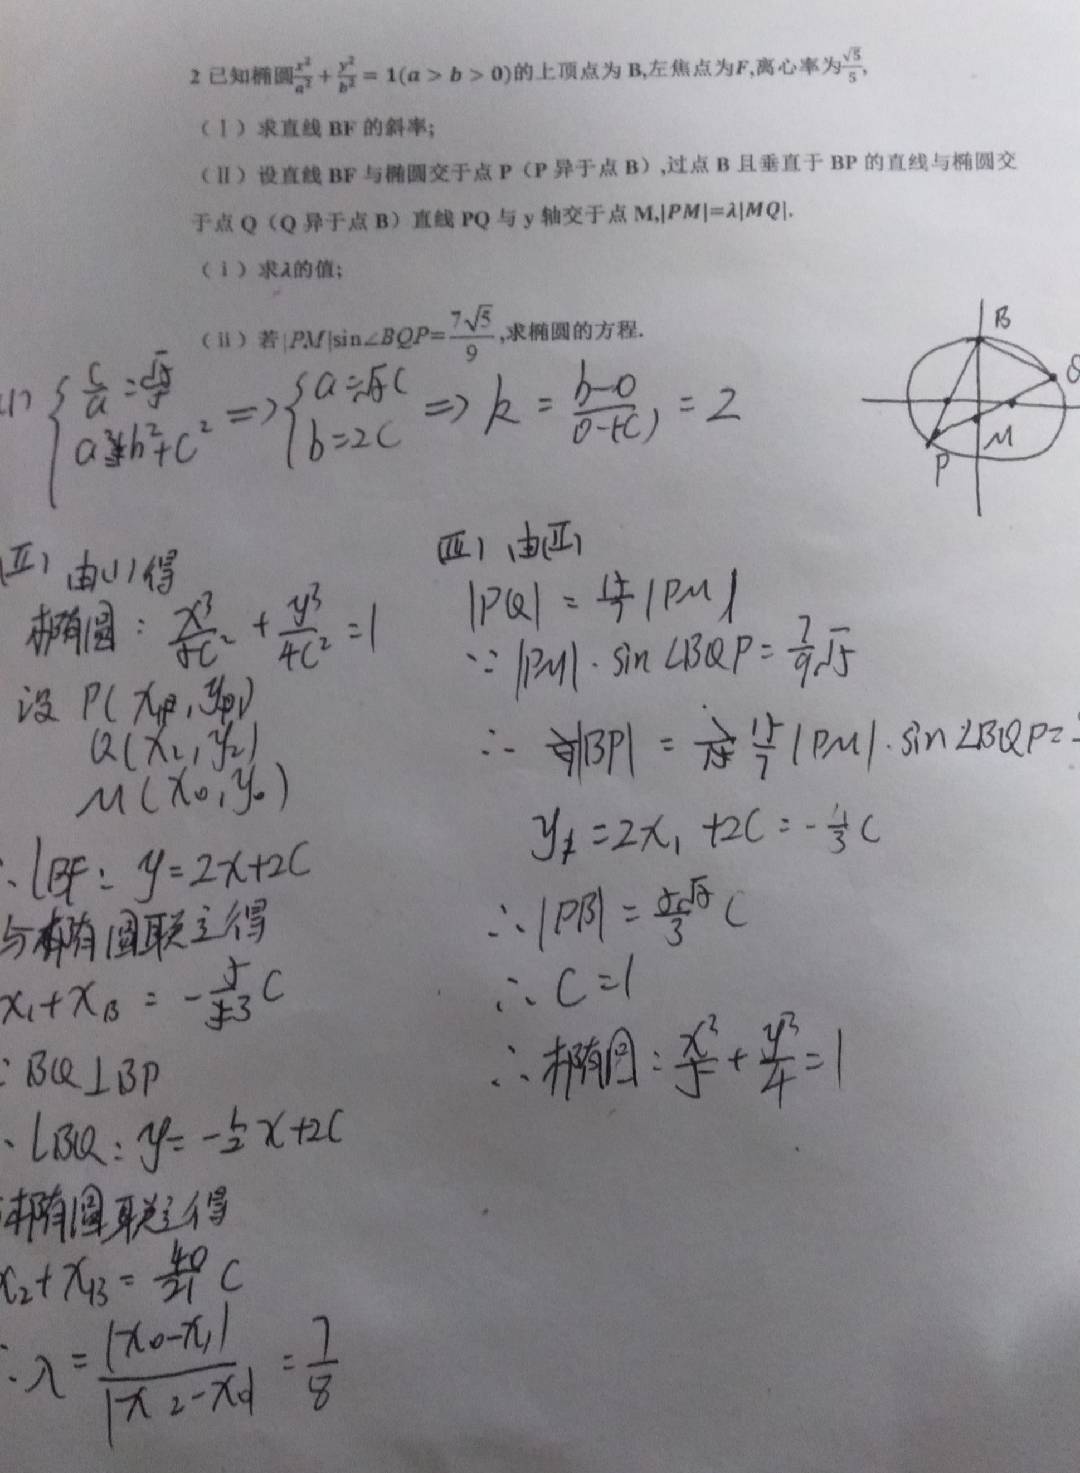 2 已知椭圆x²/a²+y²/b²=1(a>b>0)的上顶点为 B,左焦点为F,离心率为√5/5,
(Ⅰ)求直线 BF 的斜率;
(Ⅱ)设直线 BF 与椭圆交于点 P(P 异于点 B),过点 B 且垂直于 BP 的直线与椭圆交
于点 Q(Q 异于点 B)直线 PQ 与 y 轴交于点 M,|PM|=λ|MQ|.
(ⅰ)求λ的值;
(ⅱ)若|PM|sin∠BQP=7√5/9,求椭圆的方程.
B
Q
M
P
{c/a=√5/5 a²=b²+c² ⇒{a=√5c b=2c ⇒k=b-0/0-(-c)=2
(Ⅱ) 由(1)得
椭圆:x²/5c²+y²/4c²=1
设 P(x₁,y₁)
Q(x₂,y₂)
M(x₀,y₀)
lBF: y=2x+2c
与椭圆联立得
x₁+xB=-5/3c
∵BQ⊥BP
lBQ:y=-1/2x+2c
椭圆联立得
x₂+xB=40/21c
∴λ=|x₀-x₁|/|x₂-x₀|=7/8
(Ⅲ) 由(Ⅱ)
|PQ|=15/7|PM|
∵|PM|·sin∠BQP=7/9√5
∴|BP|=15/7|PM|·sin∠BQP=
y₁=2x₁+2c=-4/3c
∴|PB|=5√5/3c
∴c=1
∴椭圆:x²/5+y²/4=1